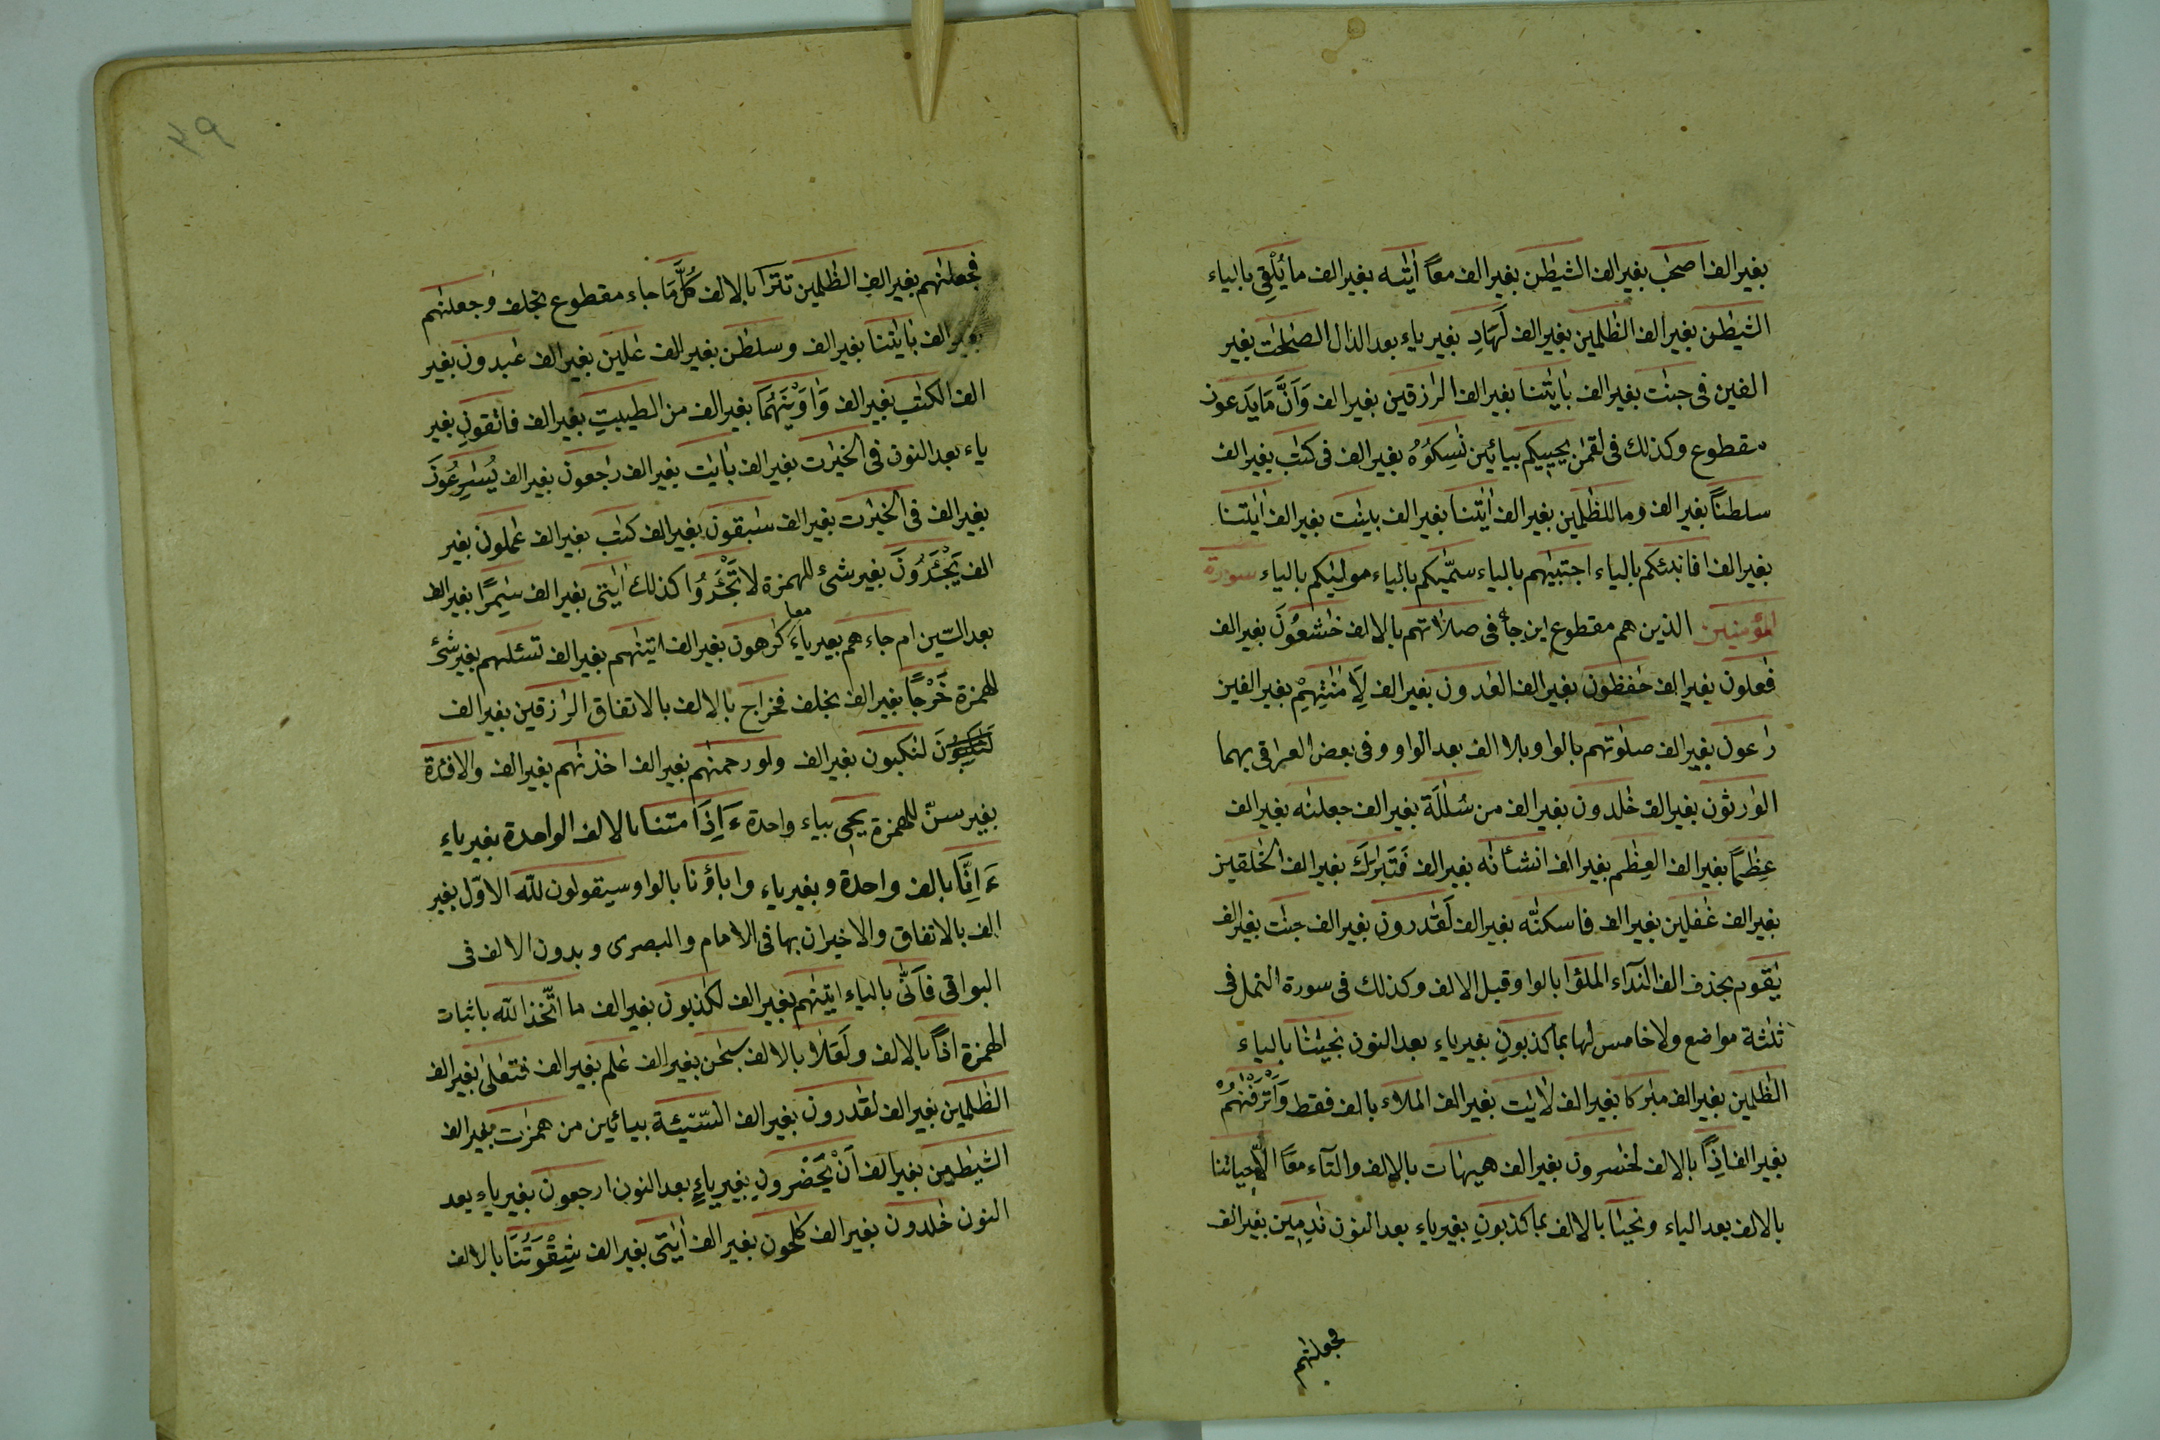 بغير الف اصحٰب بغير الف الشيطٰن بغير الف معًا اٰيٰته بغير الف ما يُلْقِى بالياء
الشيطٰن بغير الف الظٰلمين بغير الف لَهَادِ بغير ياء بعد الدال الصٰلحٰت بغير
الفين فى جنٰت بغير الف باٰيٰتنا بغير الف الرٰزقين بغير الف وَاَنَّ مَا يَدعون
مقطوع وكذلك فى لقمٰن يحييكم بيائين نٰسِكُوُهُ بغير الف فى كتٰب بغير الف
سلطٰنًا بغير الف وما للظٰلمين بغير الف اٰيٰتنا بغير الف بينٰت بغير الف اٰيٰتنا
بغير الف افانبئكم بالياء اجتبيٰهم بالياء سمّٰيكم بالياء موليٰكم بالياء سورة
المؤمنين الذين هم مقطوع اين جاء فى صلاتهم بالالف خٰشعُونَ بغير الف
فٰعلون بغير الف حٰفظون بغير الف العٰدون بغير الف لِاَمٰنٰتِهِمْ بغير الفين
رٰاعون بغير الف صلوٰتهم بالواو بلا الف بعد الواو وفى بعض العراقى بهما
الوٰرثون بغير الف خٰلدون بغير الف من سُلٰلَة بغير الف جعلنٰه بغير الف
عِظٰمًا بغير الف العِظٰم بغير الف انشأنٰه بغير الف فَتَبٰرَكَ بغير الف الخٰلقين
بغير الف غٰفلين بغير الف فاسكنّٰه بغير الف لَقٰدرون بغير الف جنٰت بغير الف
يٰقوم بحذف الف النّدآء الملؤا بالواو قبل الالف وكذلك فى سورة النمل فى
ثلٰثة مواضع ولا خامس لها بما كذبونِ بغير ياء بعد النون نجيٰنا بالياء
الظٰلمين بغير الف مبٰركا بغير الف لاٰيٰت بغير الف الملاء بالف فقط وَاَتْرَفْنٰهُمْ
بغير الف اِذًا بالالف لخٰسرون بغير الف هيهات بالالف والتآء معًا الّاحياتنا
بالالف بعد الياء ونحيٰا بالالف بما كذبونِ بغير ياء بعد النون نٰدِمين بغير الف
فجعلنٰهم
٤٩
فجعلنٰهم بغير الف الظٰلمين تترًا بالالف كُلَّ مَا جاء مقطوع بخلف وجعلنٰهم
بغير الف باٰيٰتنا بغير الف وسلطٰن بغير الف عٰلين بغير الف عٰبدون بغير
الف الكتٰب بغير الف وَاٰوَيْنٰهُمَا بغير الف من الطيبٰتِ بغير الف فاتقونِ بغير
ياء بعد النون فى الخيرٰت بغير الف باٰيٰت بغير الف رٰجعون بغير الف يُسٰرِعُونَ
بغير الف فى الخيرٰت بغير الف سٰبقون بغير الف كتٰب بغير الف عٰملون بغير
الف يَجْئَرُونَ بغير شئ للهمزة لا تَجْئَرُوا كذلك اٰيٰتى بغير الف سٰمِرًا بغير الف
بعد السّين ام جاءهم بغير ياءَ معا كٰرهون بغير الف اتينٰهم بغير الف تسئلهم بغير شئ
للهمزة خَرْجًا بغير الف بخلف فخراج بالالف بالاتفاق الرٰزقين بغير الف
لنٰكبون بغير الف ولو رحمنٰهم بغير الف اخذنٰهم بغير الف والافئدة
بغير سنّ للهمزة يحى بياء واحدة ءَ اِذَا متنا بالالف الواحدة بغير ياء
ءَ اِنَّا بالف واحدة وبغير ياء واٰباؤنا بالواو سيقولون للّه الاوّل بغير
الف بالاتفاق والاخيران بها فى الامام والبصرى وبدون الالف فى
البواقى فَاَنّٰى بالياء اتينٰهم بغير الف لكٰذبون بغير الف ما اتّخذ اللّه باثبات
الهمزة اذًا بالالف ولَعَلَا بالالف سبحٰن بغير الف عٰلم بغير الف فتعٰلىٰ بغير الف
الظٰلمين بغير الف لقٰدرون بغير الف السّيئة بيائين من همزٰت بغير الف
الشيٰطين بغير الف اَنْ يَّحْضُرونِ بغير ياءٍ بعد النون ارجعونِ بغير ياء بعد
النون خٰلدون بغير الف كٰلحون بغير الف اٰيٰتى بغير الف شِقْوَتُنَا بالالف